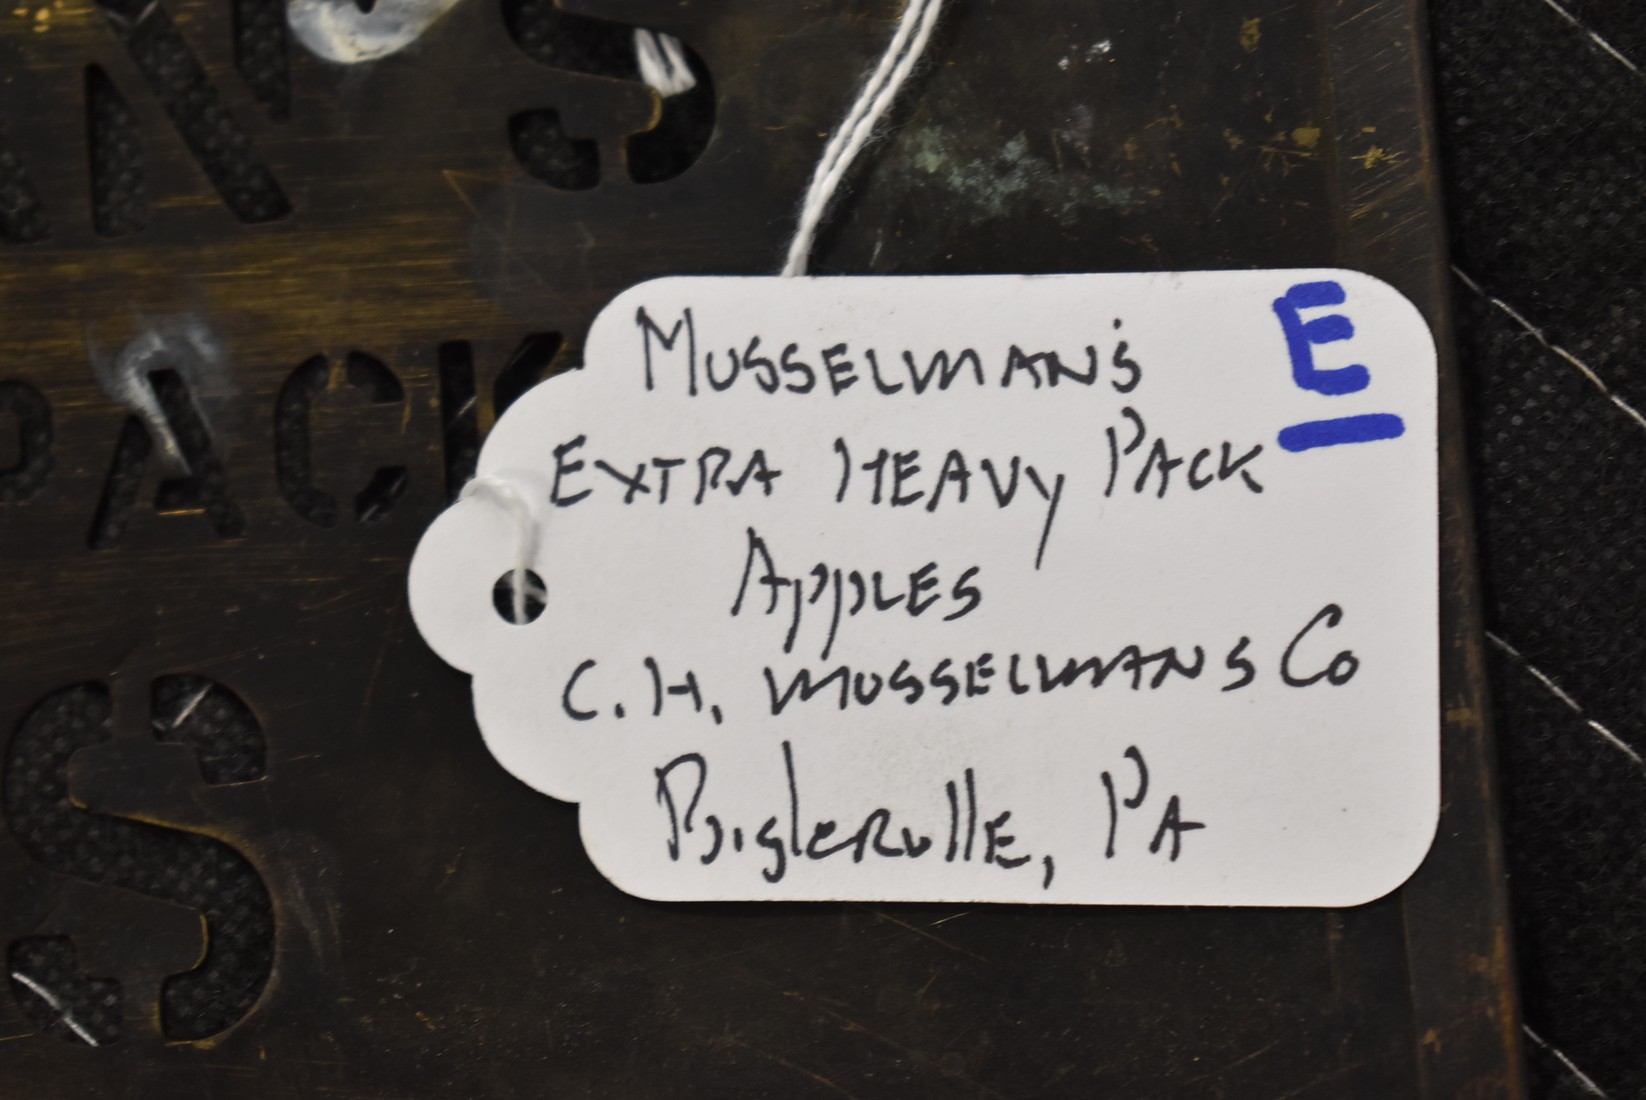 ANS
PACK
S
MUSSELMAN'S
E
EXTRA HEAVY PACK
APPLES
C.H. MUSSELMANS Co
BiglERvillE, PA